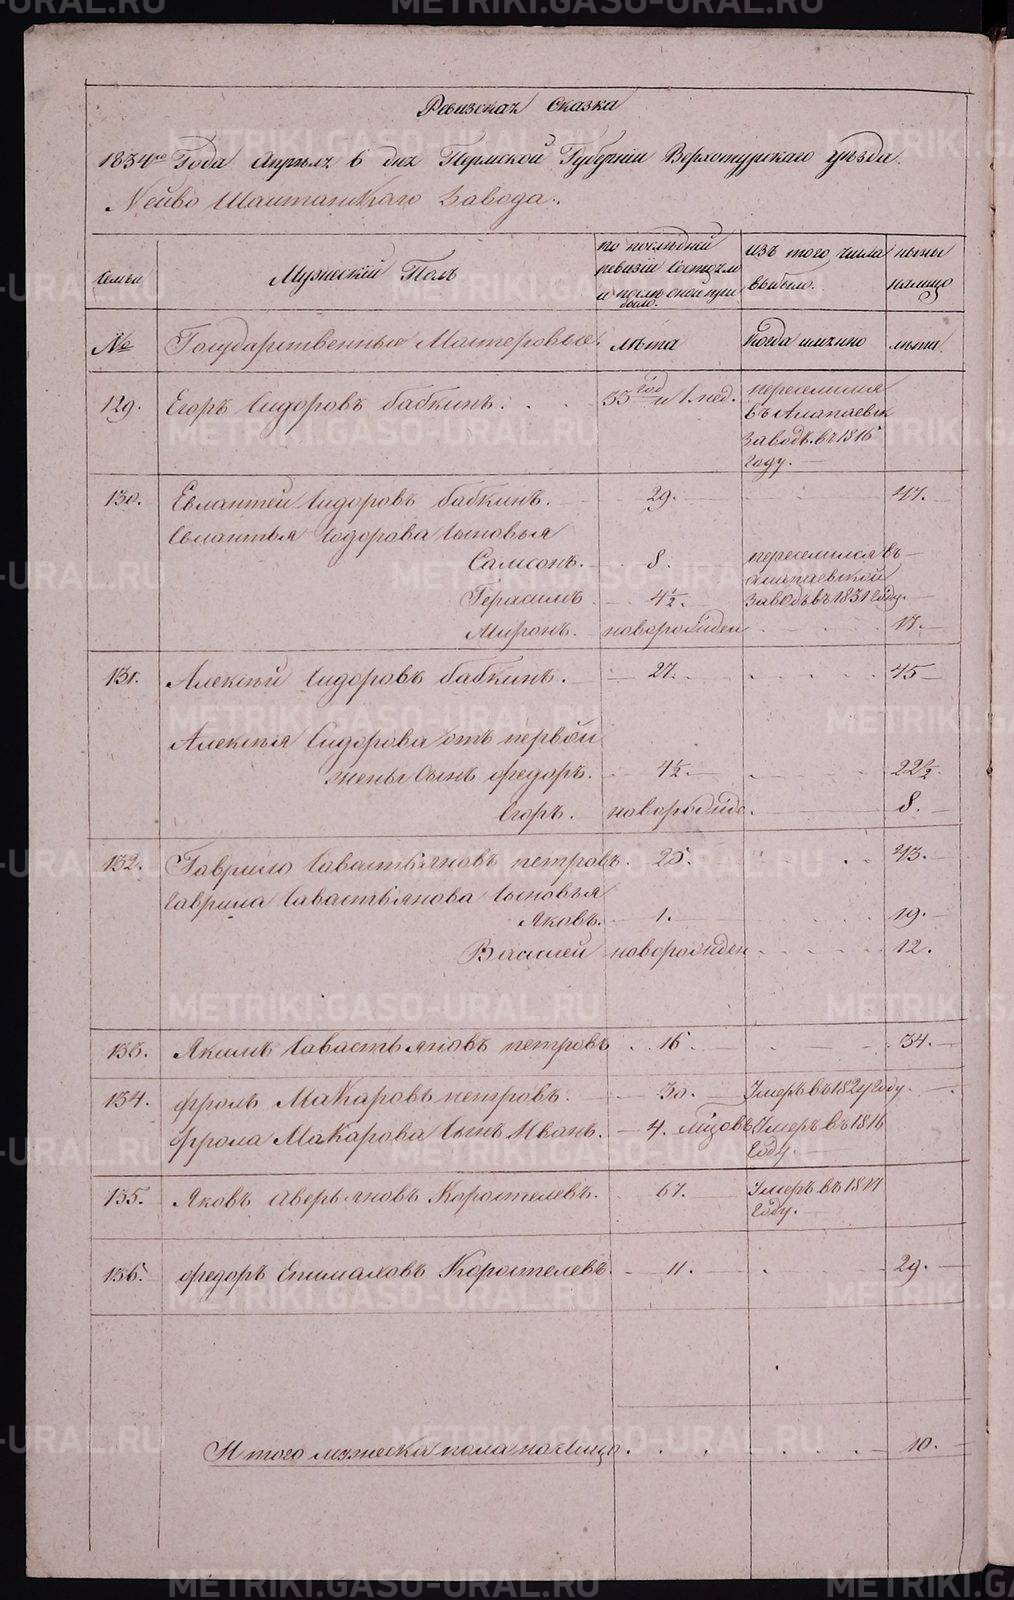 Ревизская Сказка
1834го Года Апреля 6 дня Пермской Губернии Верхотурскаго уезда.
Нейво Шайтанскаго Завода.
Семьи
Мужеский Полъ
по последней
ревизии Состояло
и после оной при
было.
изъ того числа
выбыло.
ныне
налицо
№
Государственныя Мастеровые.
лета
Когда имянно
лета.
129. Егоръ Сидоровъ бабкинъ. 33 год и 1. нед. переселился
въ Алапаевск
заводъ. въ 1816
году.
130. Евлантей Сидоровъ бабкинъ. 29. 47.
Евлантья Сидорова Сыновья
Самсонъ. 8. переселился въ
Алапаевской
Герасимъ 4½. заводъ въ 1831 году.
Миронъ. новорожден 17.
131. Алексей Сидоровъ бабкинъ. 27. 45
Алексея Сидорова отъ первой
жены Сынъ федоръ. 4½. 22½.
Егоръ. новорожде. 8.
132. Гаврило Савастьяновъ петровъ. 25. 43.
Гаврила Савастьянова Сыновья
Яковъ. 1. 19.
Василей новорожден 12.
133. Якимъ Савастьяновъ петровъ 16. 34.
134. фролъ Макаровъ петровъ. 30. Умеръ въ 182 году.
Фрола Макарова Сынъ Иванъ. 4. Умеръ въ 1816
Году.
135. Яковъ Аверьяновъ Коростелевъ. 67. Умеръ въ 1817
Году.
136. федоръ Епимаховъ Коростелевъ. 11. 29.
Итого мужеска пола налицо 10.